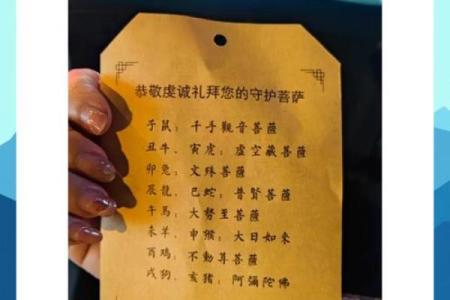 恭敬虔诚礼拜您的守护菩萨
子鼠：千手觀音菩薩
丑牛、寅虎：虛空藏菩薩
卯兔：文殊菩薩
辰龍、巳蛇：普賢菩薩
午馬：大势至菩薩
未羊、申猴：大日如来
酉鸡：不動尊菩薩
戌狗、亥豬：阿彌陀佛